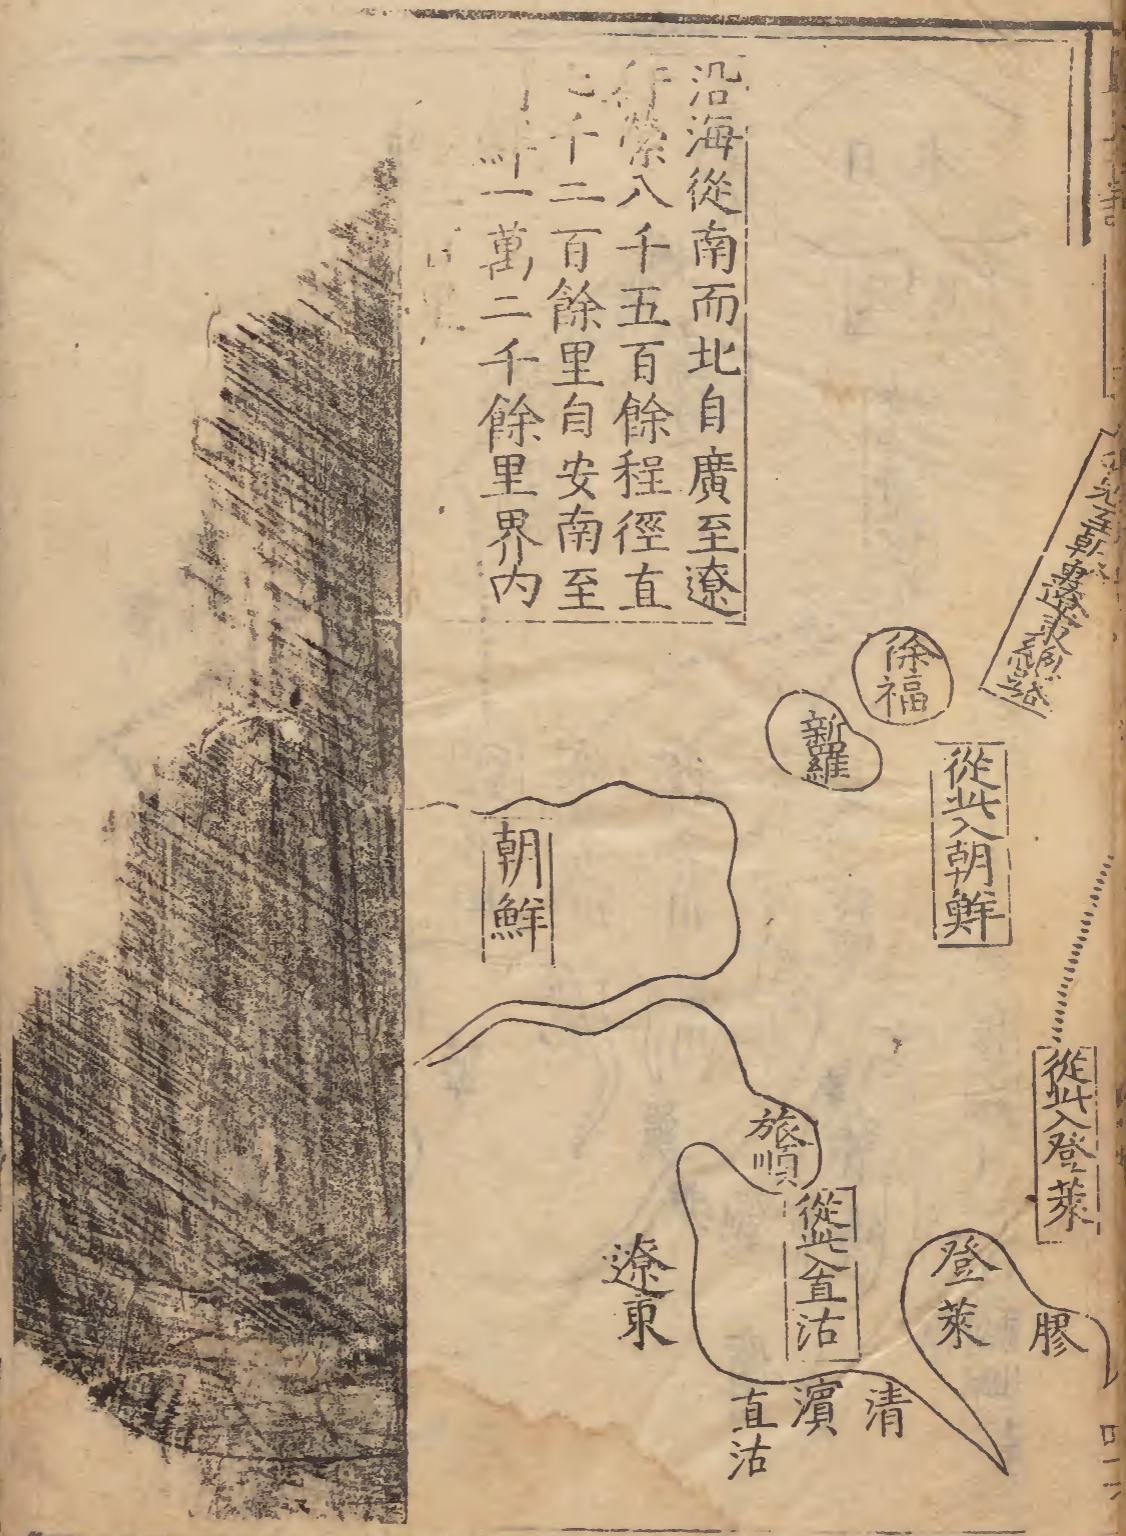 沿海從南而北自廣至遼
行縈八千五百餘程徑直
七千二百餘里自安南至
鮮一萬二千餘里界内
徐福
新羅
從此入朝鮮
朝鮮
從此入登萊
旅順
從此入直沽
遼東
登萊
膠
清
濱
直沽